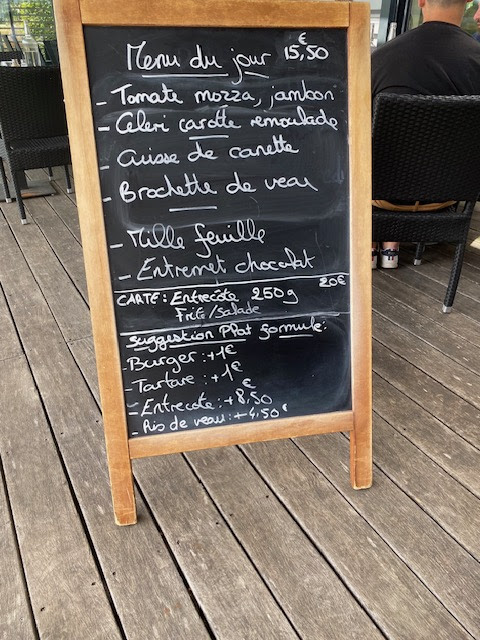 Menu du jour 15,50 €
- Tomate mozza, jambon
- Céleri carotte remoulade
- Cuisse de canette
- Brochette de veau
- Mille feuille
- Entremet chocolat
CARTE: Entrecôte 250g 20€
Frite/Salade
Suggestion Plat formule:
- Burger: +1€
- Tartare: +1€
- Entrecote: +8,50 €
- Ris de veau: +4,50 €